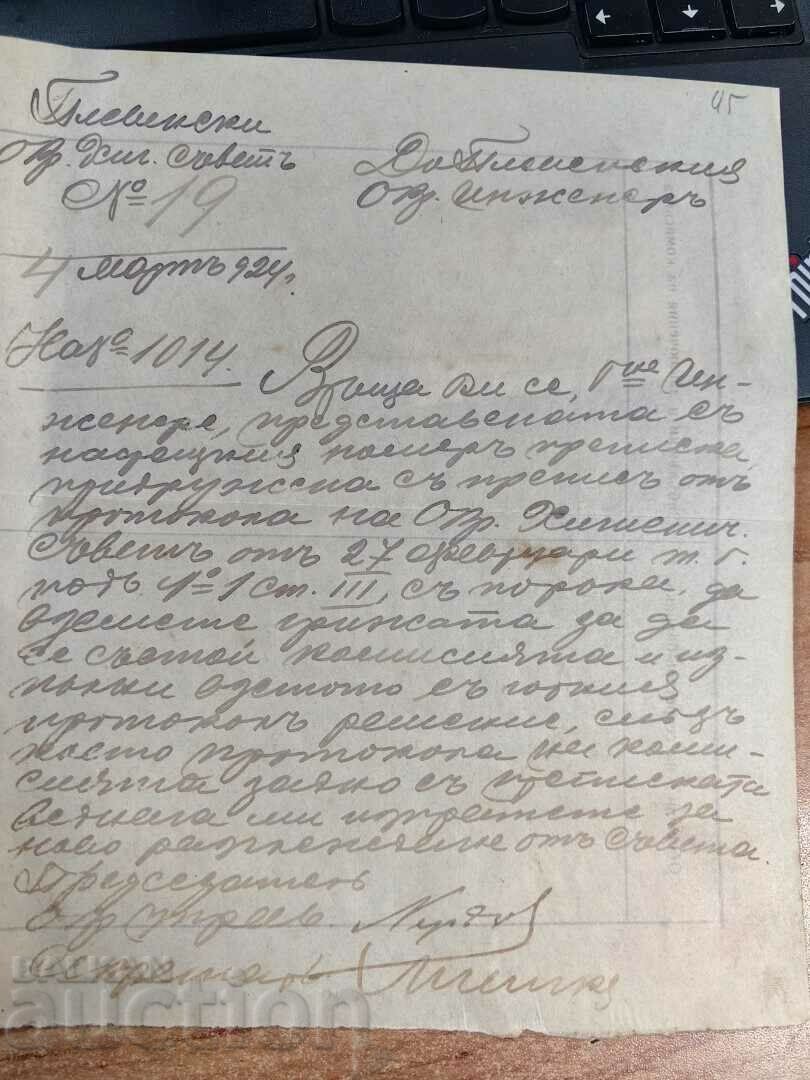 45
Плевенски
Окр. Хиг. Съветъ
№ 19
4 Мартъ 924 г.
До Плевенския
Окр. Инженеръ
На № 1014.
Връща Ви се, Г-не Ин-
женере, представената съ
настоящия номеръ преписка
придружена съ преписъ отъ
протокола на Окр. Хигиенич.
Съветъ отъ 27 февруари т. г.
подъ № 1 ст. III, съ поръка, да
вземете грижата за да
се състои комисията и из-
пълни взетото съ горния
протоколъ решение, следъ
което протокола на коми-
сията заедно съ преписката
веднага ми изпратете за
ново разглеждане отъ Съвета.
Председатель
Окр. Управ.
Секретарь
auction